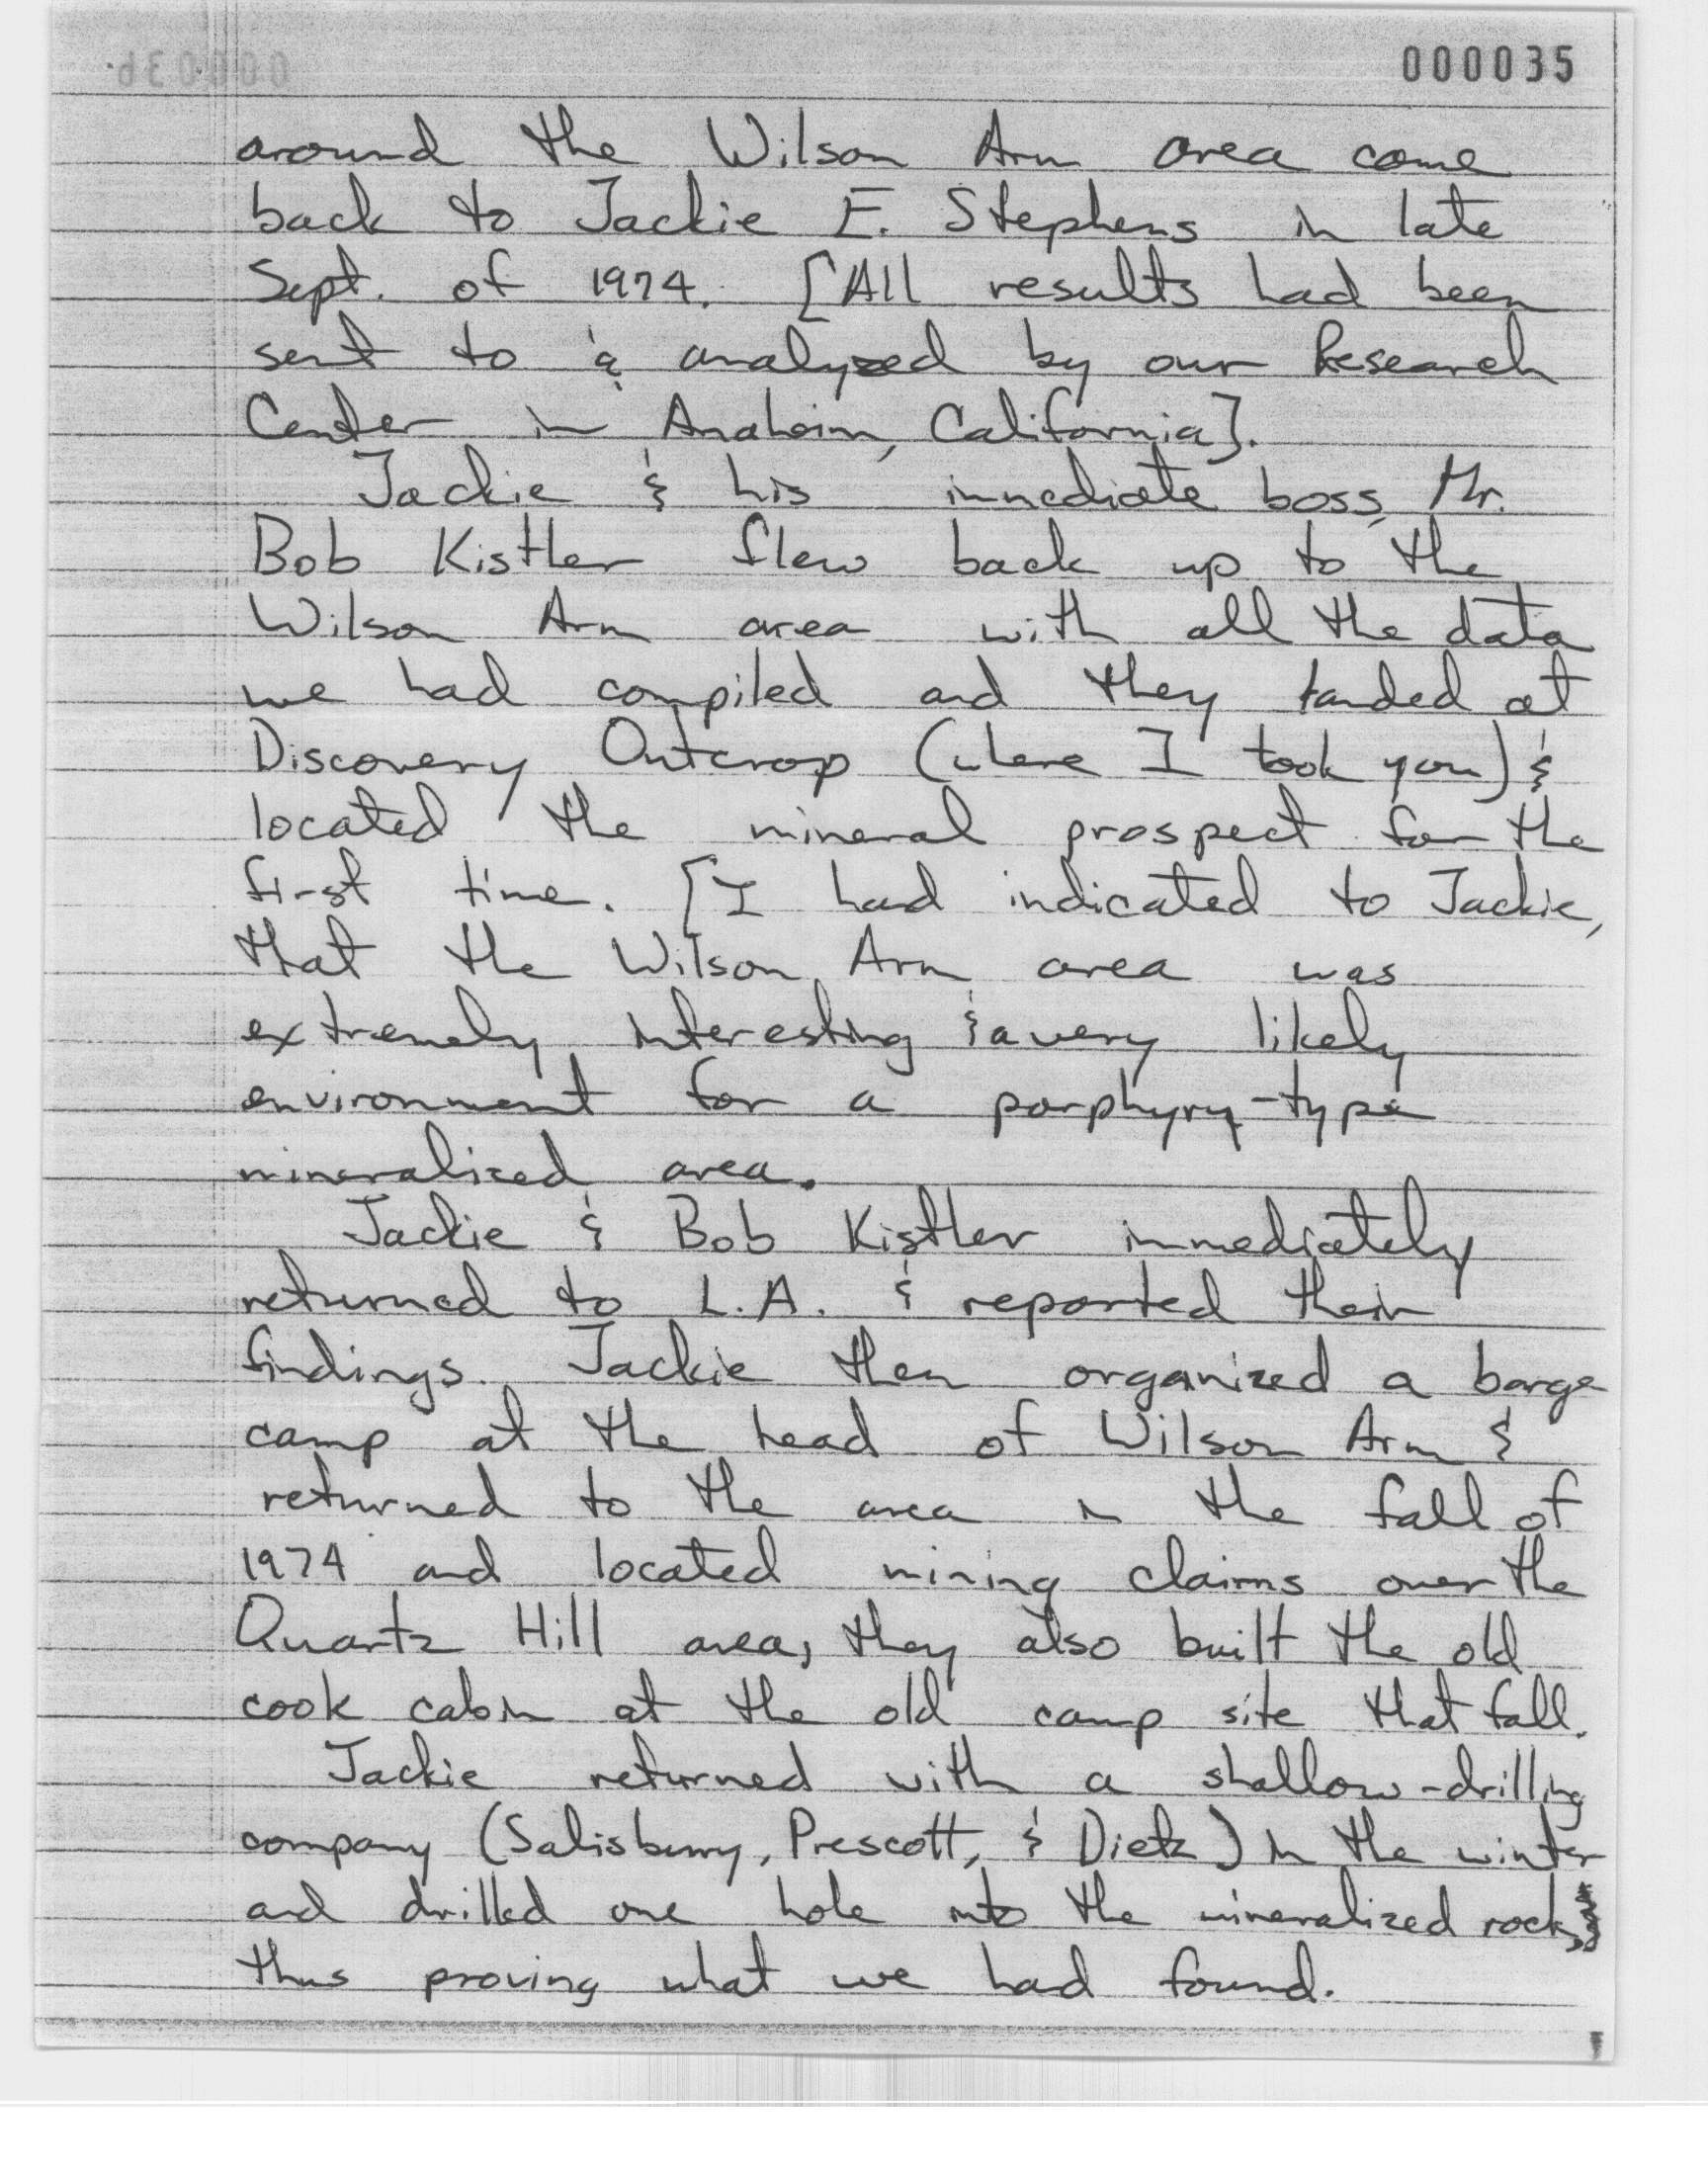 000035
around the Wilson Arm area come
back to Jackie E. Stephens in late
Sept. of 1974. [All results had been
sent to & analyzed by our Research
Center in Anaheim, California].
Jackie & his immediate boss, Mr.
Bob Kistler flew back up to the
Wilson Arm area with all the data
we had compiled and they landed at
Discovery Outcrop (where I took you) &
located the mineral prospect for the
first time. [I had indicated to Jackie,
that the Wilson Arm area was
extremely interesting & a very likely
environment for a porphyry-type
mineralized area.
Jackie & Bob Kistler immediately
returned to L.A. & reported their
findings. Jackie then organized a barge
camp at the head of Wilson Arm &
returned to the area in the fall of
1974 and located mining claims over the
Quartz Hill area, they also built the old
cook cabin at the old camp site that fall.
Jackie returned with a shallow-drilling
company (Salisbury, Prescott, & Dietz) in the winter
and drilled one hole into the mineralized rock,
thus proving what we had found.